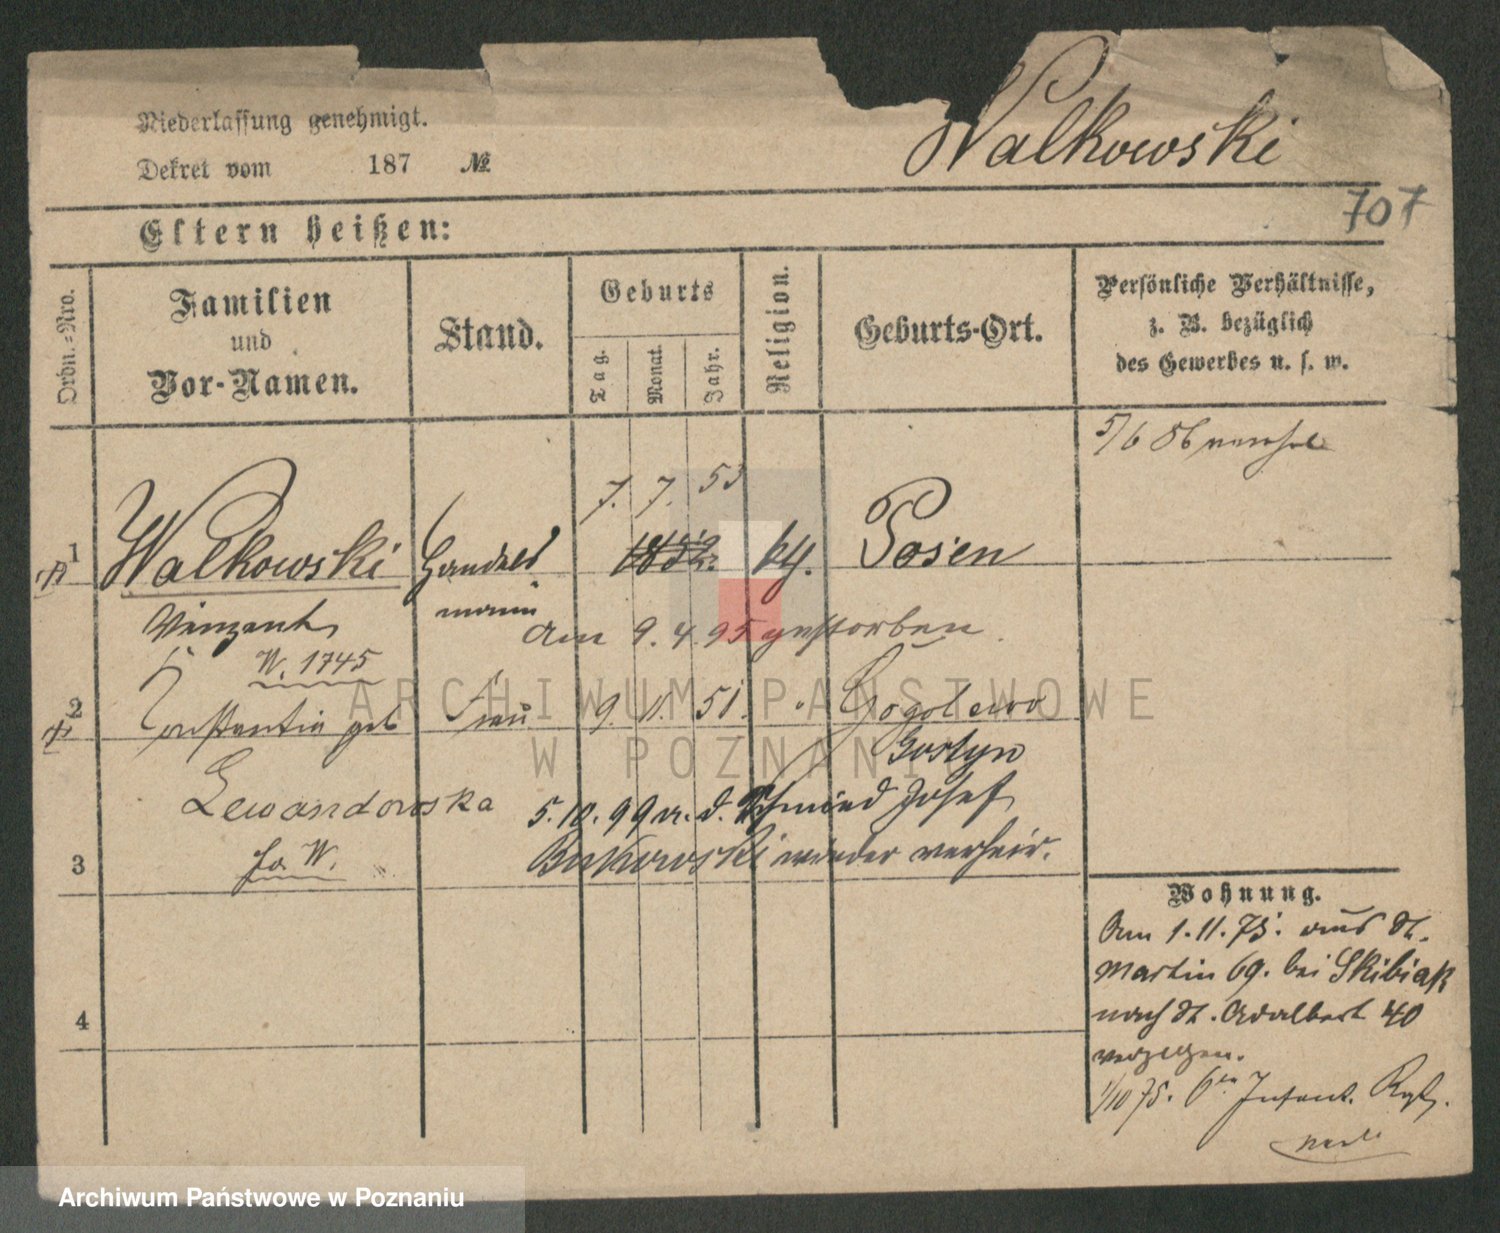 Niederlassung genehmigt.
Dekret vom 187 №
Walkowski
707
Eltern heißen:
Ordn.-Nro.
Familien
und
Vor-Namen.
Stand.
Geburts
Tag.
Monat.
Jahr.
Religion.
Geburts-Ort.
Persönliche Verhältnisse,
z. B. bezüglich
des Gewerbes u. s. w.
5/6 86
7. 7. 53
1 Walkowski Handels 1852. kth. Posen
Vinzent mann
am 9.4.95 gestorben.
W. 1745
2 Constantia geb Frau 9. 11. 51. " Gogolewo
Gostyn
Lewandowska
5.10.99 m. d. Schmied Josef
3 fo. W. Bukowski wieder verheir.
Wohnung.
Am 1.11.75. aus St.
Martin 69. bei Skibiak
nach St. Adalbert 40
verzogen.
4
1/10 75. 6ten Infant. Rgt.
ARCHIWUM PAŃSTWOWE
W POZNANIU
Archiwum Państwowe w Poznaniu